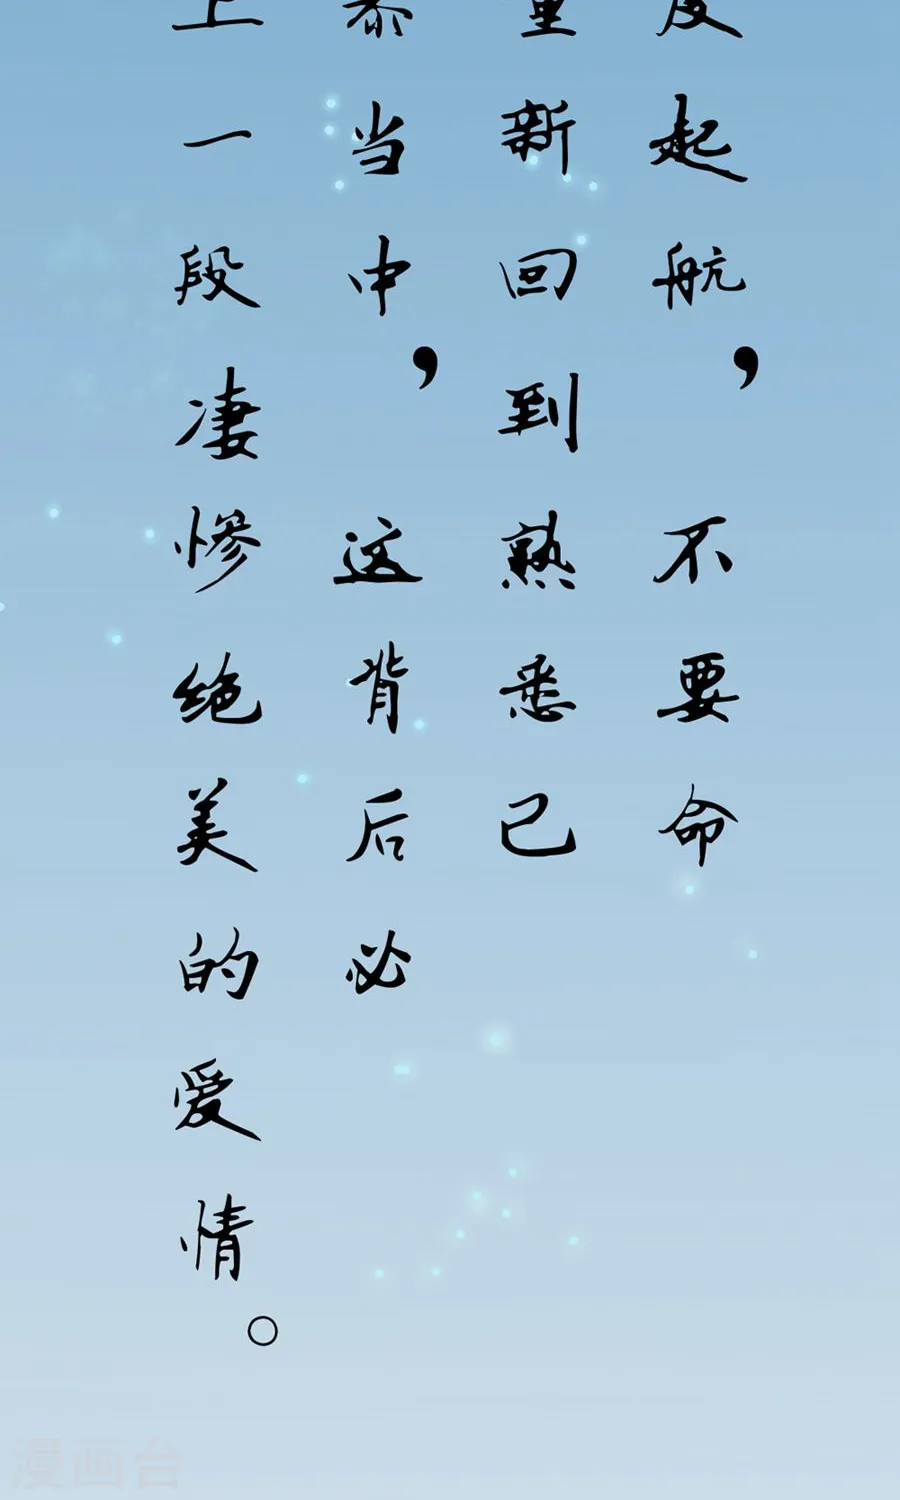 度起航，不要命
重新回到熟悉已
泰当中，这背后必
上一段凄惨绝美的爱情。
漫画台